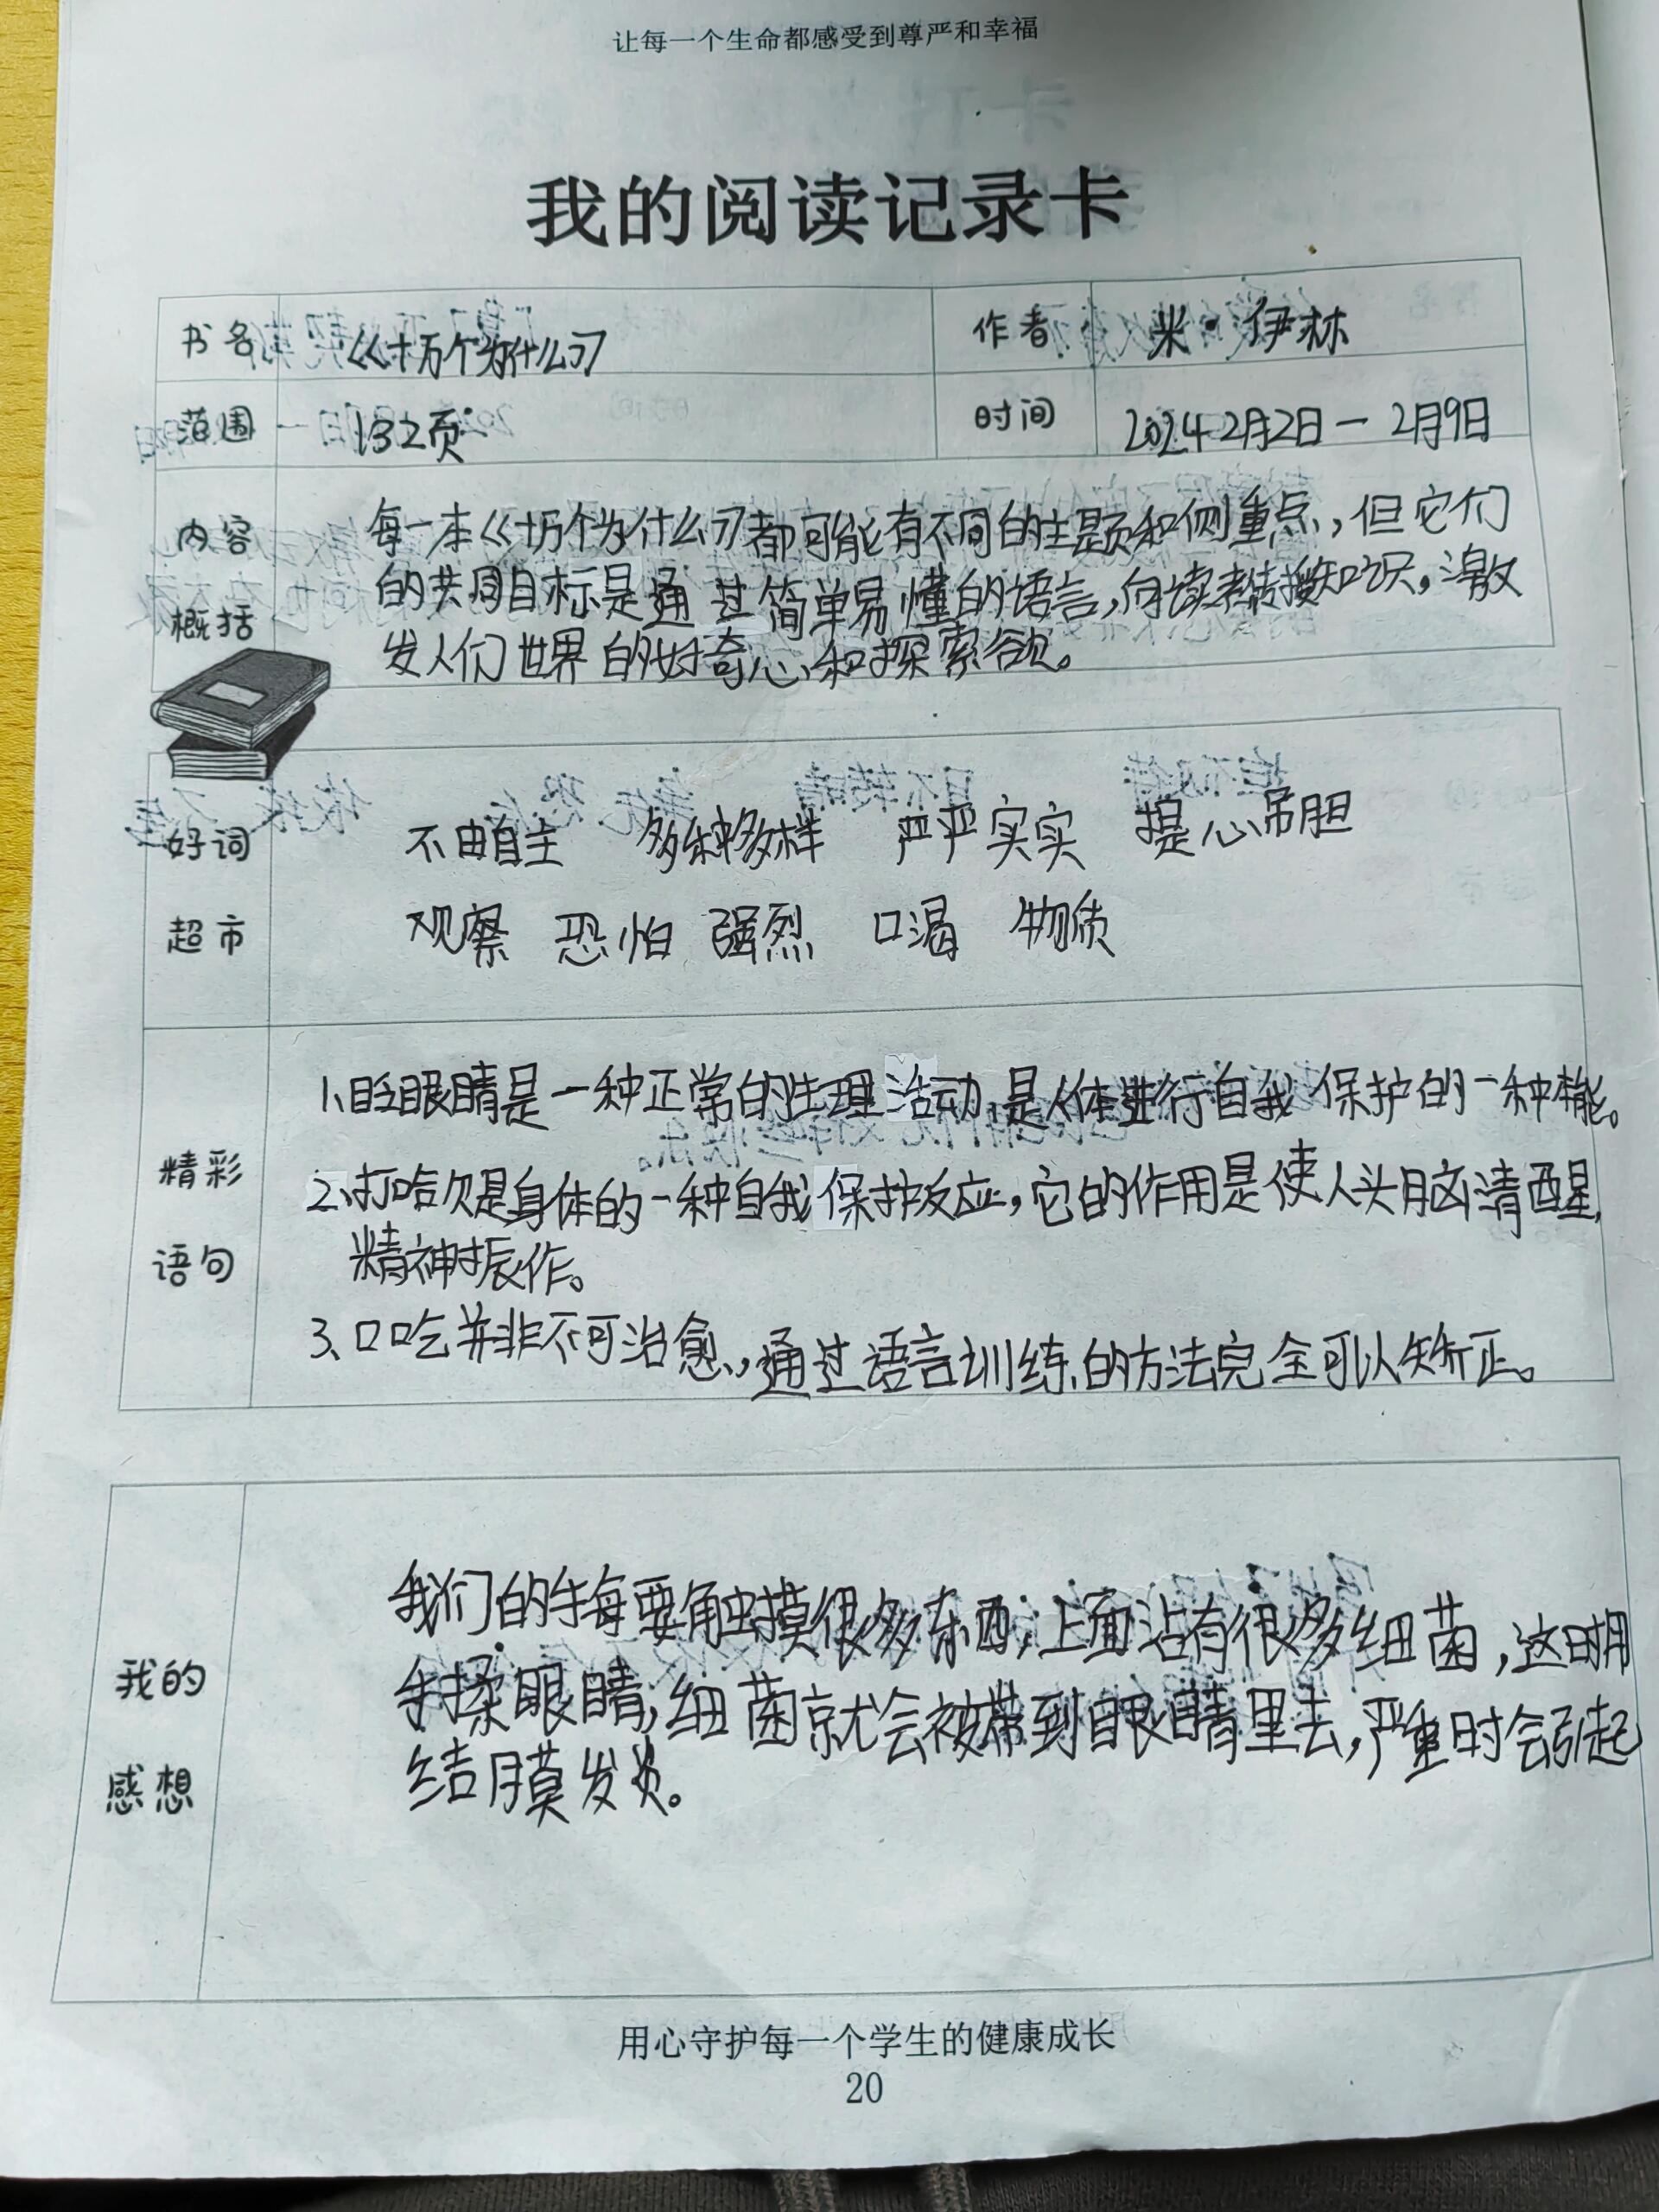 让每一个生命都感受到尊严和幸福
我的阅读记录卡
书名 《十万个为什么》 作者 米·伊林
范围 132页 时间 2024 2月2日一2月9日
内容
概括
每一本《十万个为什么》都可能有不同的主题和侧重点,但它们
的共同目标是通过简单易懂的语言,向读者传授知识,激
发人们世界的好奇心和探索欲。
好词
超市
不由自主 多种多样 严严实实 提心吊胆
观察 恐怕 强烈 口渴 物质
精彩
语句
1、眨眼睛是一种正常的生理活动,是人体进行自我保护的一种本能。
2、打哈欠是身体的一种自我保护反应,它的作用是使人头脑清醒,
精神振作。
3、口吃并非不可治愈,通过语言训练的方法完全可以矫正。
我的
感想
我们的手每要触摸很多东西,上面沾有很多细菌,这时用
手揉眼睛,细菌就会被带到眼睛里去,严重时会引起
结膜发炎。
用心守护每一个学生的健康成长
20